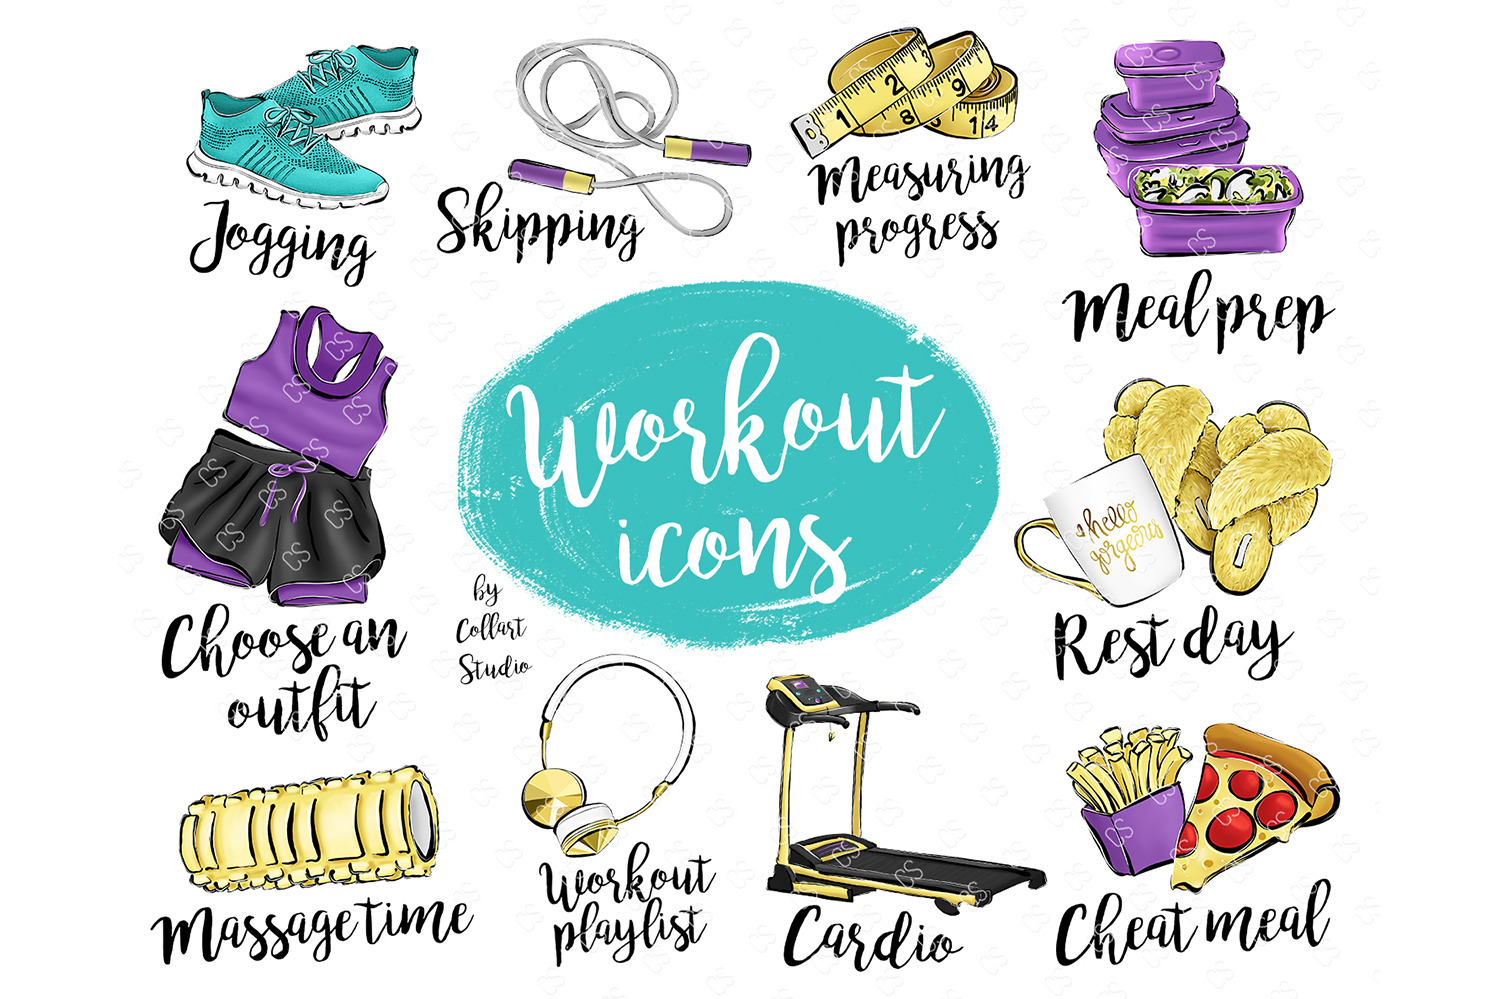 Jogging
Skipping
1 2 3
8 9
14
Measuring
progress
Meal prep
Workout
icons
by
Collart
Studio
Choose an
outfit
hello
gorgeous
Rest day
Massage time
Workout
playlist
Cardio
Cheat meal
CS